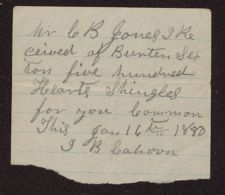 Mr C B Jones I Re
ceived of Burten Sex
ton five hundred
Hearts Shingles
for you Common
This Jan 16th 1880
J B Cahoon